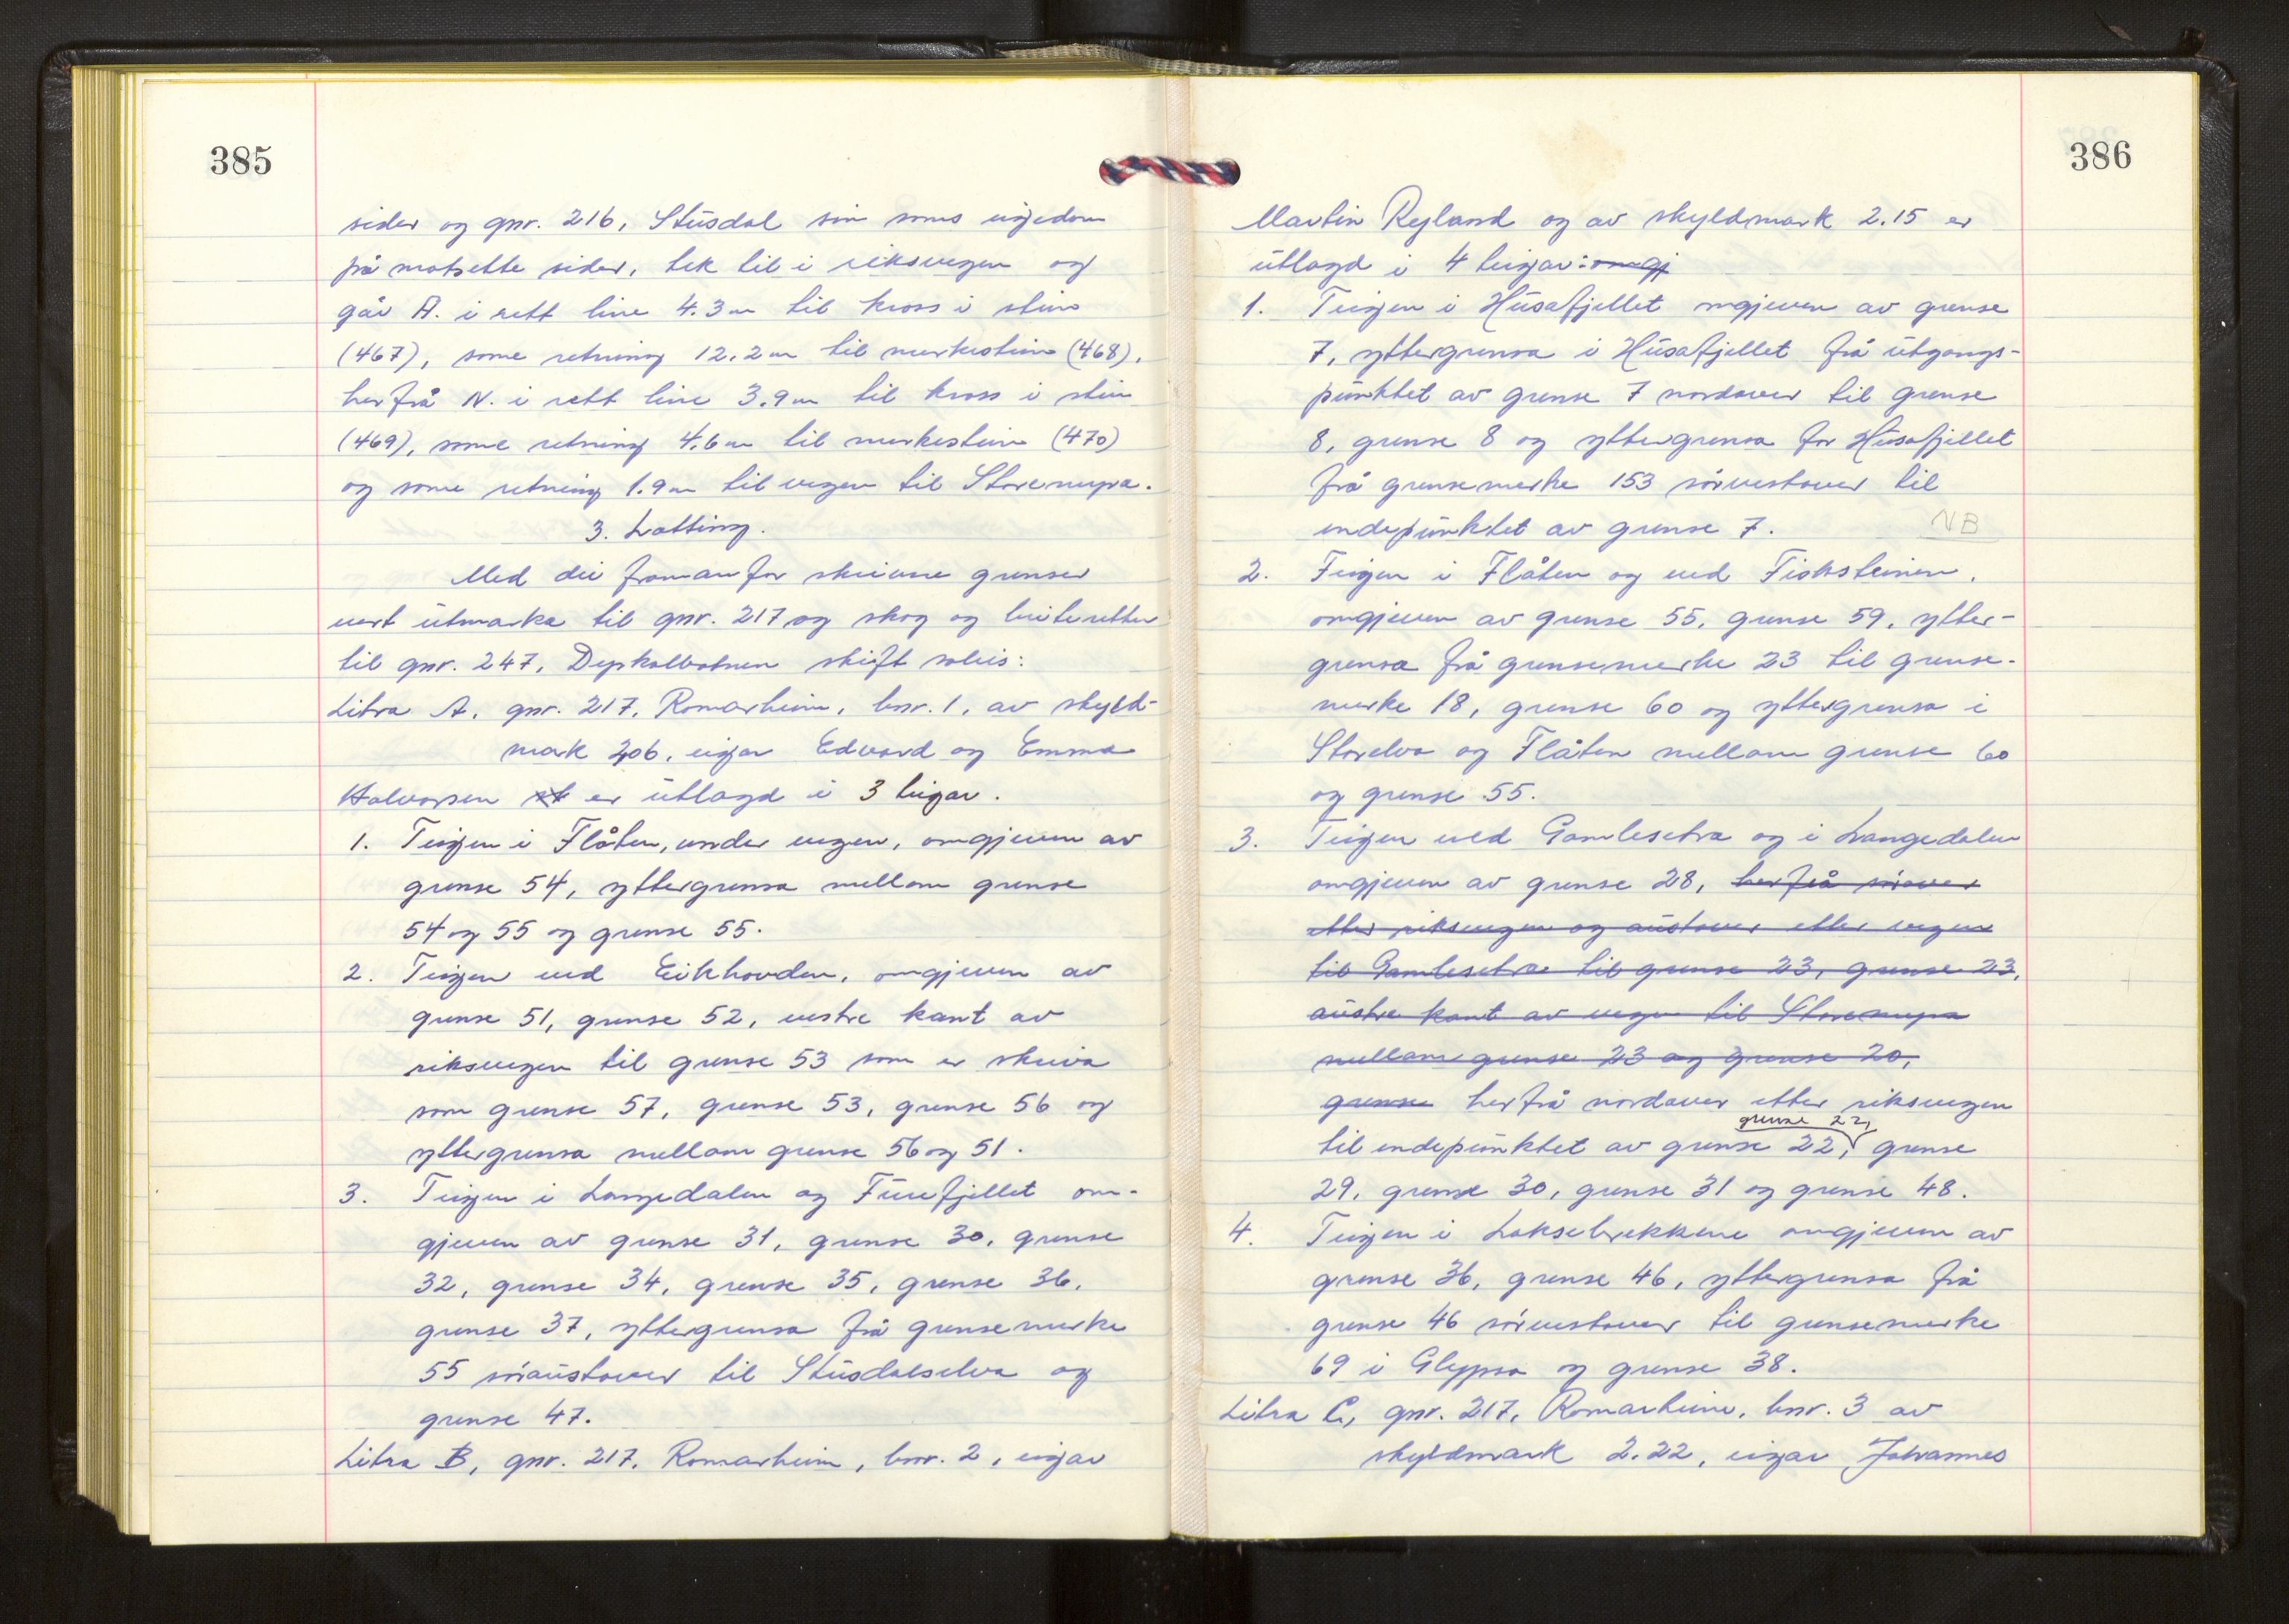 385
sider og gnr. 216, Stusdal sin sams eigedom
på motsette sider, tek til i riksvegen og
går A. i rett line 4.3 m til kross i stein
(467), same retning 12.2 m til merkestein (468),
herfrå N. i rett line 3.9 m til kross i stein
(469), same retning 4.6 m til merkestein (470)
og same retning 1.9 m til vegen til Storemyra.
3. Lotting.
Med dei framanfor skrivne grenser
vert utmarka til gnr. 217 og skog og beiteretter
til gnr. 247, Dyrkolbotnen skift soleis:
Litra A, gnr. 217, Romarheim, bnr. 1, av skyld-
mark 2,06, eigar Edvard og Emma
Halvorsen er utlagd i 3 teigar.
1. Teigen i Flåten, under vegen, omgjeven av
grense 54, yttergrensa mellom grense
54 og 55 og grense 55.
2. Teigen ved Eikhovden, omgjeven av
grense 51, grense 52, vestre kant av
riksvegen til grense 53 som er skriva
som grense 57, grense 53, grense 56 og
yttergrensa mellom grense 56 og 51.
3. Teigen i Langedalen og Furefjellet om-
gjeven av grense 31, grense 30, grense
32, grense 34, grense 35, grense 36,
grense 37, yttergrensa frå grensemerke
55 søraustover til Stusdalselva og
grense 47.
Litra B, gnr. 217, Romarheim, bnr. 2, eigar
386
Martin Rejland og av skyldmark 2.15 er
utlagd i 4 teigar: omgj
1. Teigen i Husafjellet omgjeven av grense
7, yttergrensa i Husafjellet frå utgangs-
punktet av grense 7 nordover til grense
8, grense 8 og yttergrensa for Husafjellet
frå grensemerke 153 sørvestover til
endepunktet av grense 7. NB
2. Teigen i Flåten og ved Fisksteinen,
omgjeven av grense 55, grense 59, ytter-
grensa frå grensemerke 23 til grense-
merke 18, grense 60 og yttergrensa i
Storelva og Flåten mellom grense 60
og grense 55.
3. Teigen ved Gamlesetra og i Langedalen
omgjeven av grense 28, herfrå sørover
etter riksvegen og austover etter vegen
til Gamlesetra til grense 23, grense 23,
austre kant av vegen til Storemyra
mellom grense 23 og grense 20,
grense herfrå nordover etter riksvegen
grense 22,
til endepunktet av grense 22, grense
29, grense 30, grense 31 og grense 48.
4. Teigen i Laksebrekkene omgjeven av
grense 36, grense 46, yttergrensa frå
grense 46 sørvestover til grensemerke
69 i Glypsa og grense 38.
Litra C, gnr. 217, Romarheim, bnr. 3 av
skyldmark 2.22, eigar Johannes